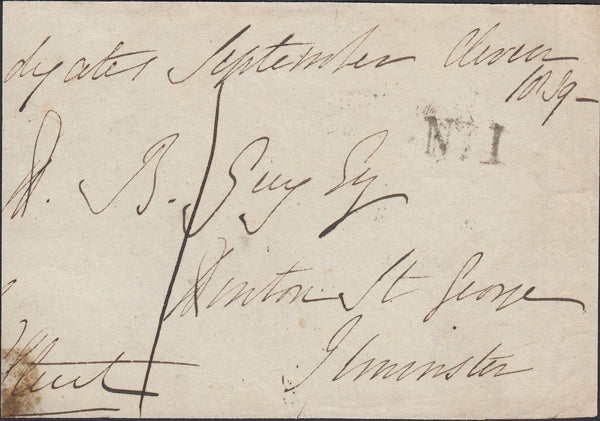 dgates September Eleven
1839
No. 1
W. B. Guy Esq
Hinton St George
Ilminster